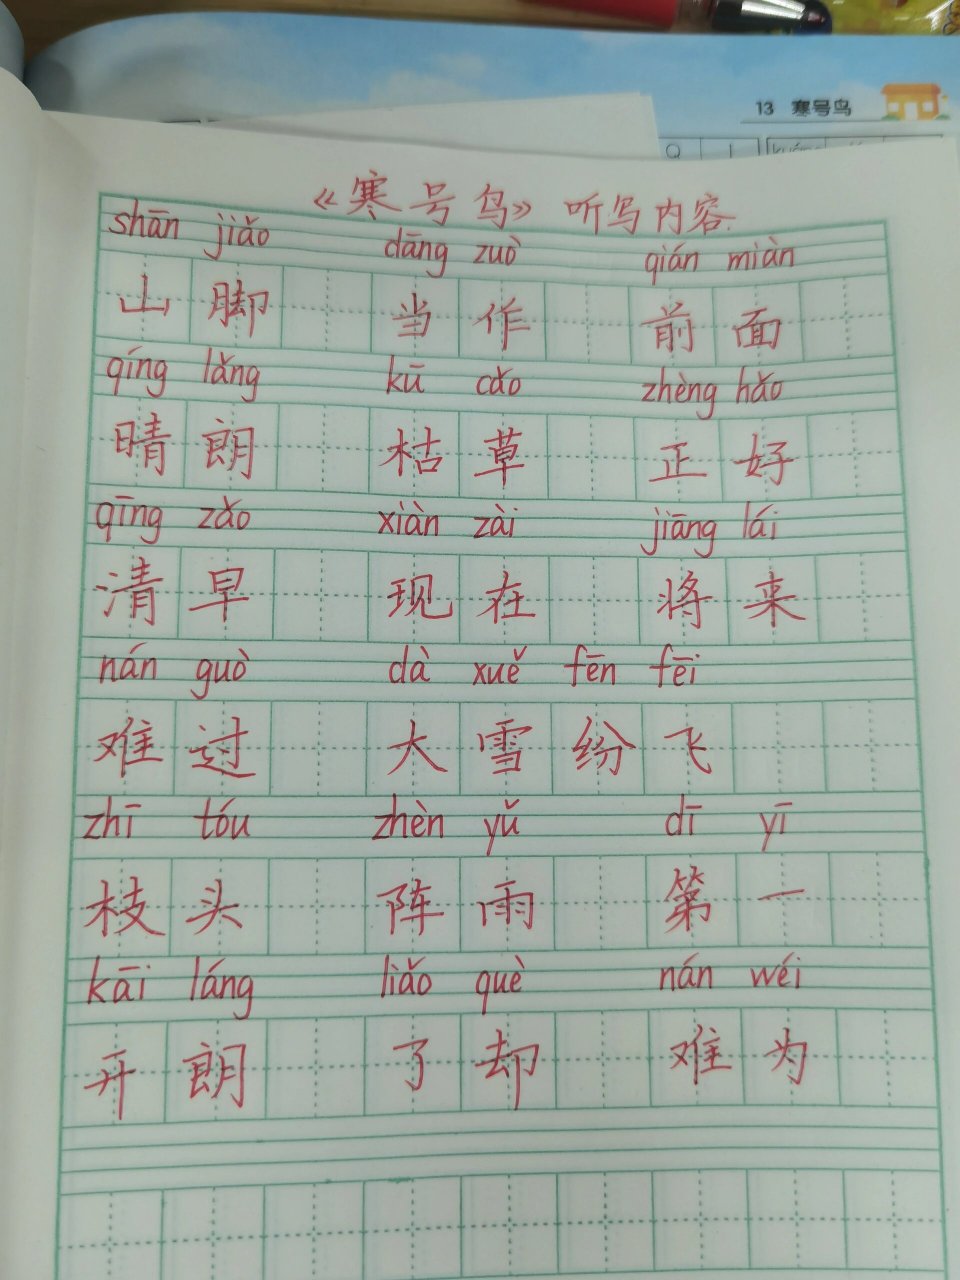 13 寒号鸟
《寒号鸟》听写内容.
shān jiǎo dāng zuò qián miàn
山脚 当作 前面
qíng lǎng kū cǎo zhèng hǎo
晴朗 枯草 正好
qīng zǎo xiàn zài jiāng lái
清早 现在 将来
nán guò dà xuě fēn fēi
难过 大雪纷飞
zhī tóu zhèn yǔ dī yī
枝头 阵雨 第一
kāi láng liǎo què nán wéi
开朗 了却 难为